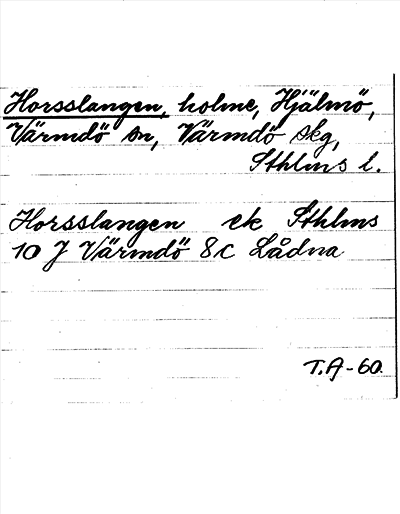 Horsslangen, holme, Hjälmö,
Värmdö sn, Värmdö skg,
Sthlms l.
Horsslangen ek Sthlms
10 J Värmdö 8c Lådna
T.A-60.